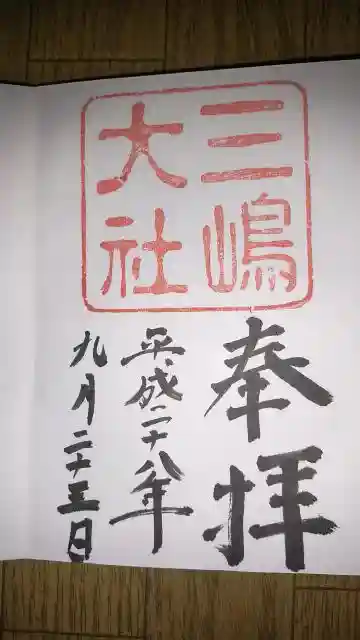 三嶋
大社
奉拝
平成二十八年
九月二十三日